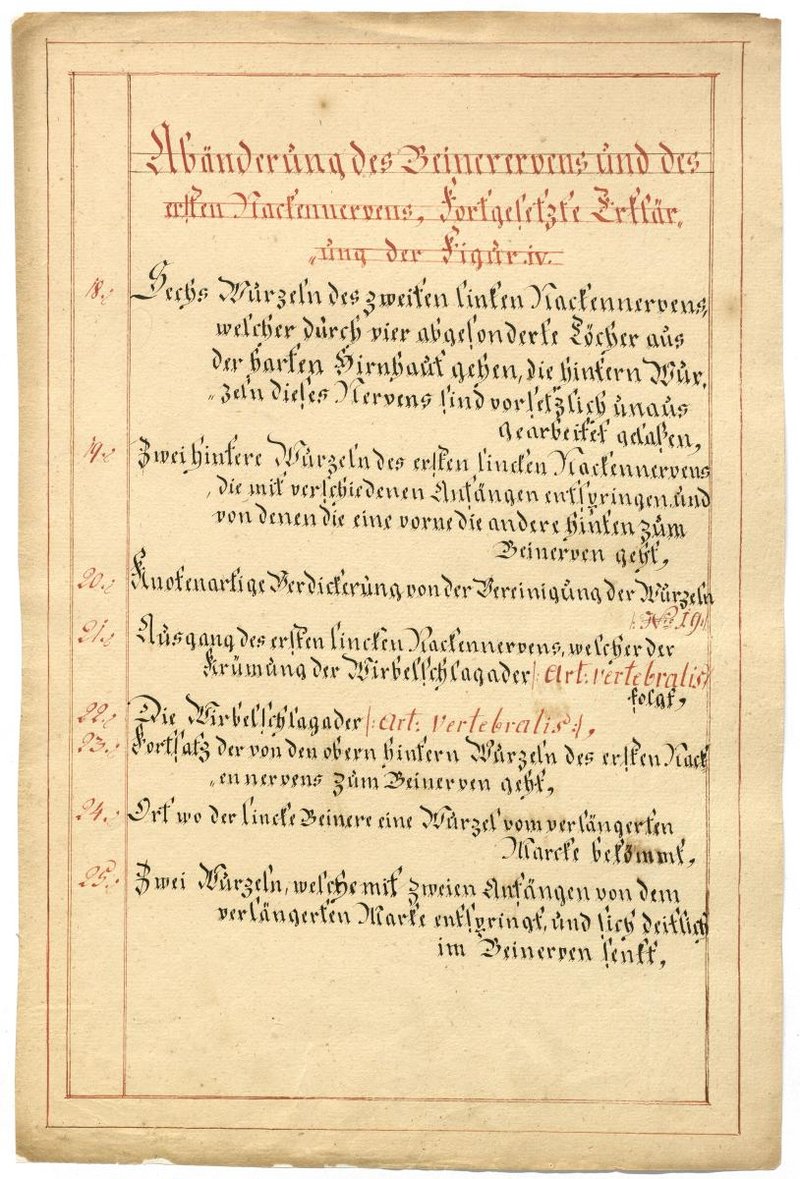 Abänderung des Beinervens und des
ersten Nackennervens, Fortgesetzte Erklär„
„ung der Figur. iv.
18. Sechs Wurzeln des zweiten linken Nackennervens,
welcher durch vier abgesonderte Löcher aus
der harten Hirnhaut gehen, die hintern Wur„
„zeln dieses Nervens sind vorsetzlich unaus
gearbeitet gelaßen,
19. Zwei hintere Wurzeln des ersten lincken Nackennervens
die mit verschiedenen Anfängen entspringen, und
von denen die eine vorne die andere hinten zum
Beinerven geht,
20. Knotenartige Verdickerung von der Vereinigung der Wurzeln
|: No 19 :|
21. Ausgang des ersten lincken Nackennervens, welcher der
Krümung der Wirbelschlagader |: Art: vertebralis :|
folgt,
22. Die Wirbelschlagader |: Art: vertebralis :|,
23. Fortsatz der von den obern hintern Wurzeln des ersten Nack
„ennervens zum Beinerven geht,
24. Ort wo der lincke Beinerve eine Wurzel vom verlängerten
Marcke bekömmt,
25. Zwei Wurzeln, welche mit zweien Anfängen von dem
verlängerten Marke entspringt, und sich deitlich
im Beinerven senkt,